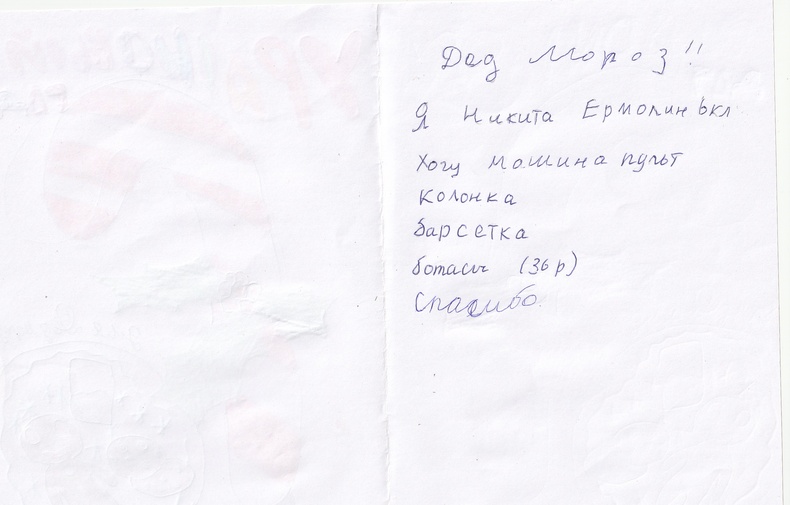 Дад Мороз!!
Я Никита Ермолин 6кл
Хочу машина пульт
колонка
барсетка
ботасы (36 р)
Спасибо